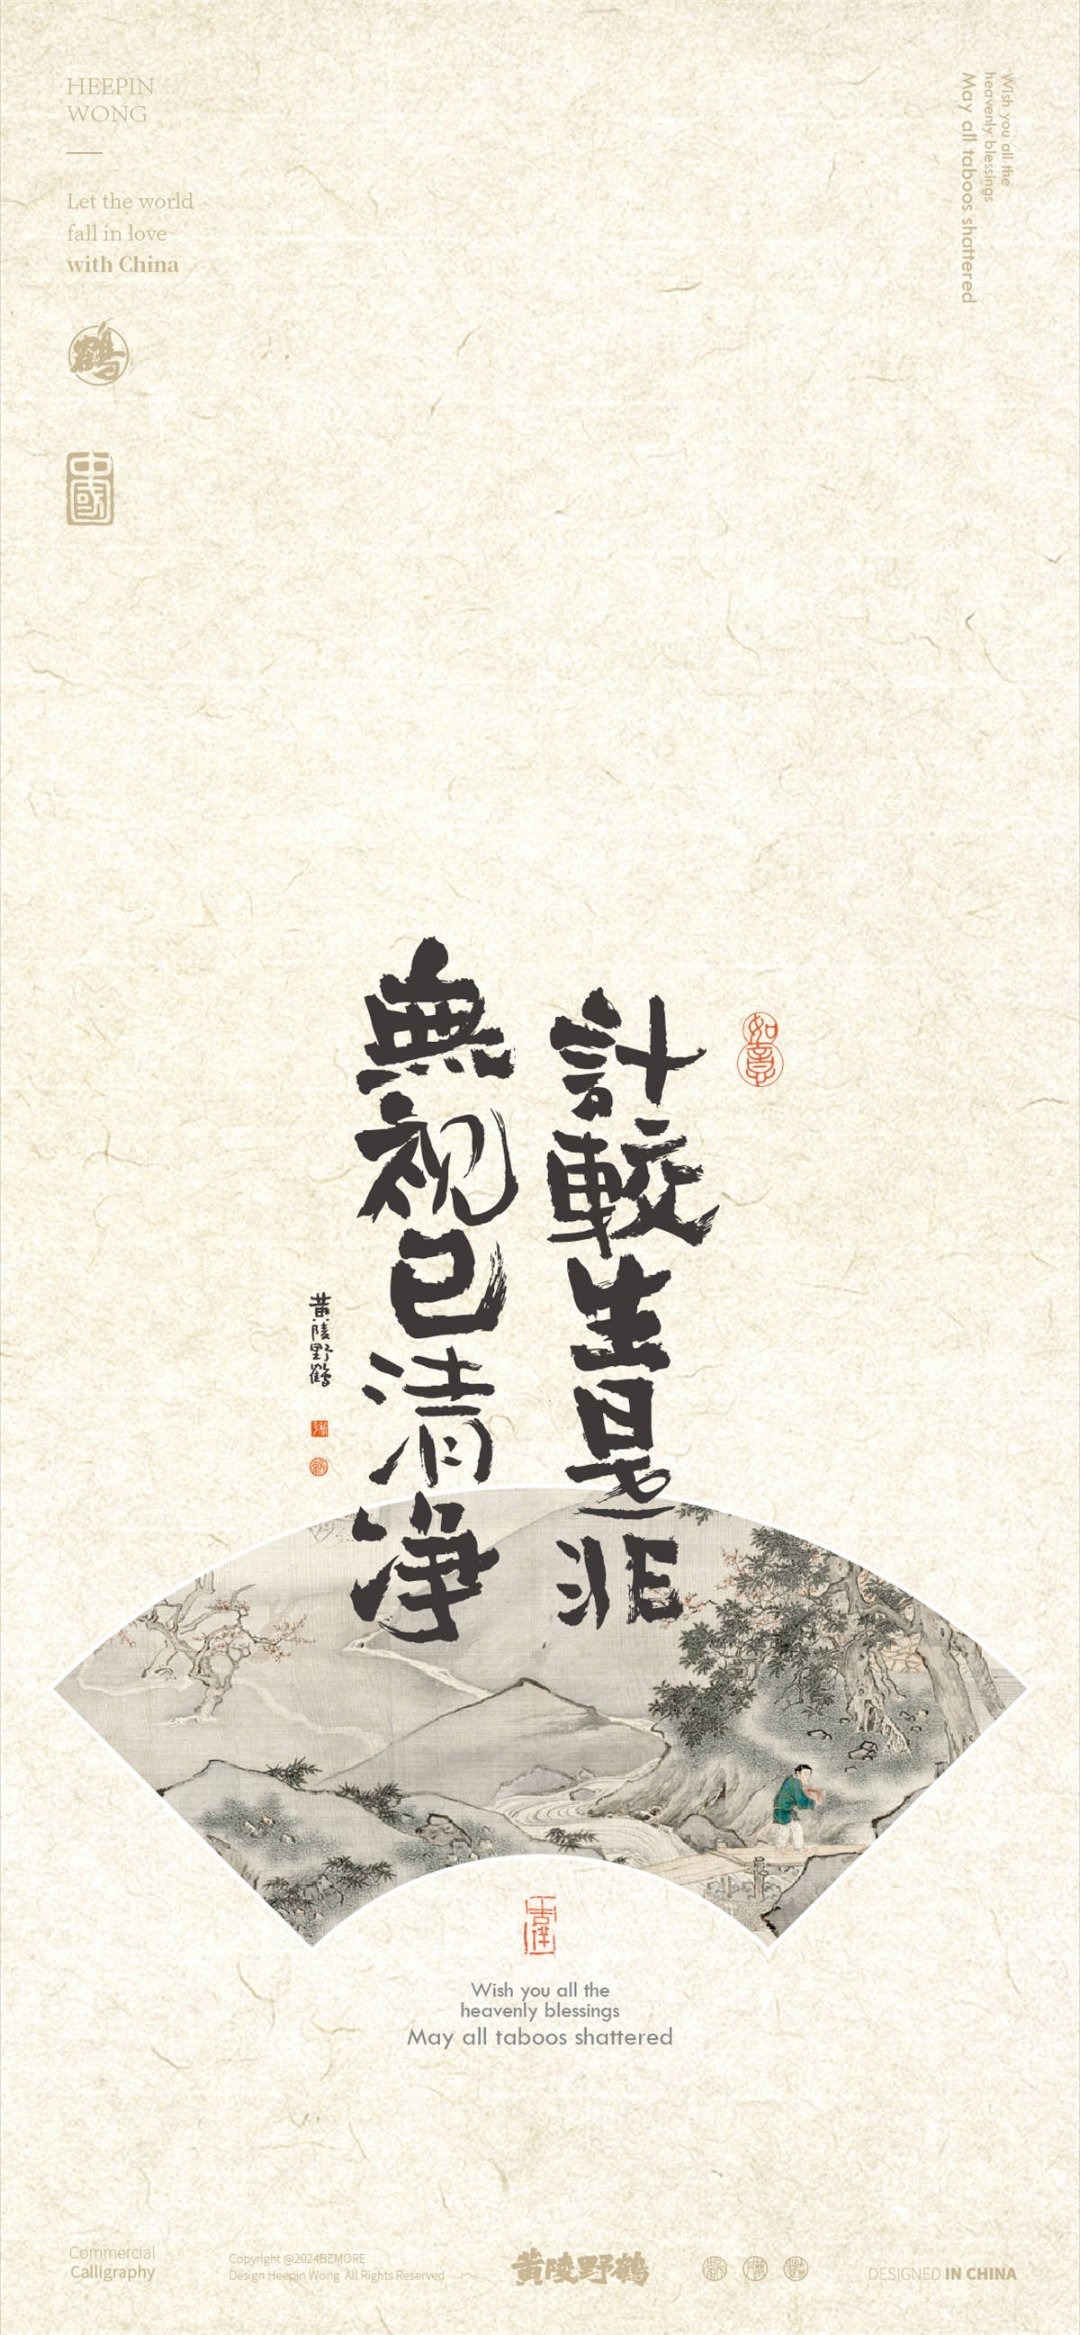 HEEPIN
WONG
Let the world
fall in love
with China
鶴
中國
Wish you all the
heavenly blessings
May all taboos shattered
如意
計較生是非
無視已清净
黄陵野鶴
Wish you all the
heavenly blessings
May all taboos shattered
Commercial
Calligraphy
Copyright @2024BEMORE
Design Heepin Wong All Rights Reserved
黄陵野鶴
DESIGNED IN CHINA